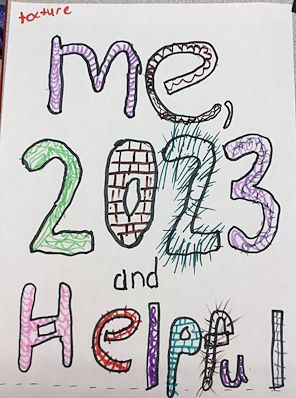 tocture
me,
2023
and
Helpful